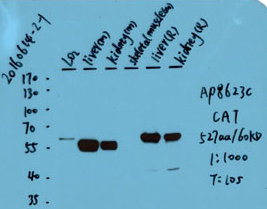 20160614-2-1
Lo2
liver(m)
kidney(m)
skeletal muscle(m)
liver(R)
kidney(R)
170
130
100
70
55
40
35
AP8623C
CAT
527aa/60kD
1:1000
T:10S